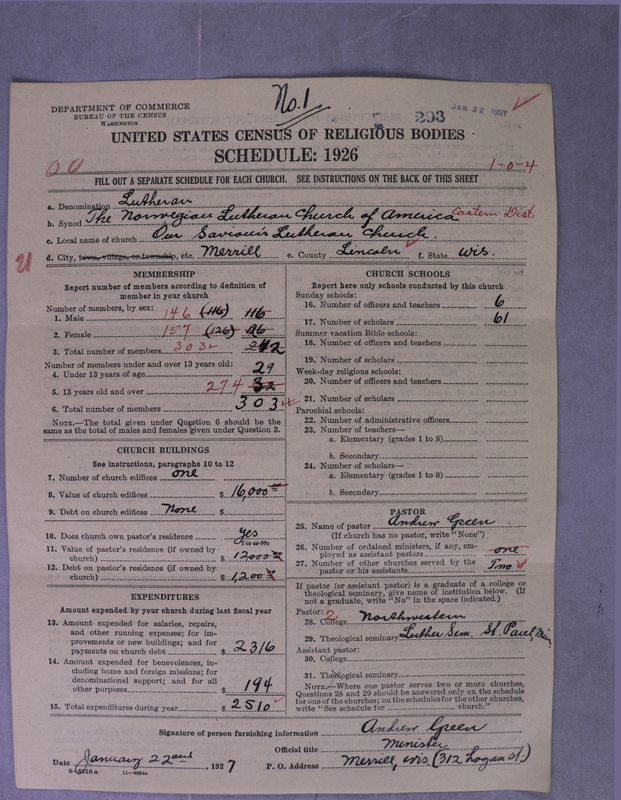 No. 1
DEPARTMENT OF COMMERCE
BUREAU OF THE CENSUS
WASHINGTON
293
JAN 22 1927
UNITED STATES CENSUS OF RELIGIOUS BODIES
SCHEDULE: 1926
00
1-0-4
FILL OUT A SEPARATE SCHEDULE FOR EACH CHURCH. SEE INSTRUCTIONS ON THE BACK OF THIS SHEET
a. Denomination Lutheran
b. Synod The Norwegian Lutheran Church of America Eastern Dist
c. Local name of church Our Saviour's Lutheran Church.
d. City, town, village, or township, etc. Merrill e. County Lincoln f. State Wis.
MEMBERSHIP
Report number of members according to definition of
member in your church
Number of members, by sex:
1. Male 146 (116) 116
2. Female 157 (126) 126
3. Total number of members 303 242
Number of members under and over 13 years old:
4. Under 13 years of age 29
5. 13 years old and over 274 32
6. Total number of members 303
NOTE.—The total given under Question 6 should be the
same as the total of males and females given under Question 3.
CHURCH BUILDINGS
See instructions, paragraphs 10 to 12
7. Number of church edifices one
8. Value of church edifices $ 16,000
9. Debt on church edifices None $
10. Does church own pastor's residence Yes
Yes or No
11. Value of pastor's residence (if owned by
church) $ 12000
12. Debt on pastor's residence (if owned by
church) $ 1,200
EXPENDITURES
Amount expended by your church during last fiscal year
13. Amount expended for salaries, repairs,
and other running expenses; for im-
provements or new buildings; and for
payments on church debt $ 2316
14. Amount expended for benevolences, in-
cluding home and foreign missions; for
denominational support; and for all
other purposes $ 194
15. Total expenditures during year $ 2510
CHURCH SCHOOLS
Report here only schools conducted by this church
Sunday schools:
16. Number of officers and teachers 6
17. Number of scholars 61
Summer vacation Bible schools:
18. Number of officers and teachers
19. Number of scholars
Week-day religious schools:
20. Number of officers and teachers
21. Number of scholars
Parochial schools:
22. Number of administrative officers
23. Number of teachers—
a. Elementary (grades 1 to 8)
b. Secondary
24. Number of scholars—
a. Elementary (grades 1 to 8)
b. Secondary
PASTOR
25. Name of pastor Andrew Green
(If church has no pastor, write "None")
26. Number of ordained ministers, if any, em-
ployed as assistant pastors one
27. Number of other churches served by the
pastor or his assistants Two
If pastor (or assistant pastor) is a graduate of a college or
theological seminary, give name of institution below. (If
not a graduate, write "No" in the space indicated.)
Pastor: 2
28. College Northwestern
29. Theological seminary Luther Sem. St. Paul, Minn
Assistant pastor:
30. College
31. Theological seminary
NOTE.—Where one pastor serves two or more churches,
Questions 28 and 29 should be answered only on the schedule
for one of the churches; on the schedules for the other churches,
write "See schedule for church."
Signature of person furnishing information Andrew Green
Official title Minister
Date January 22nd, 1927 P. O. Address Merrill, Wis (312 Logan St.)